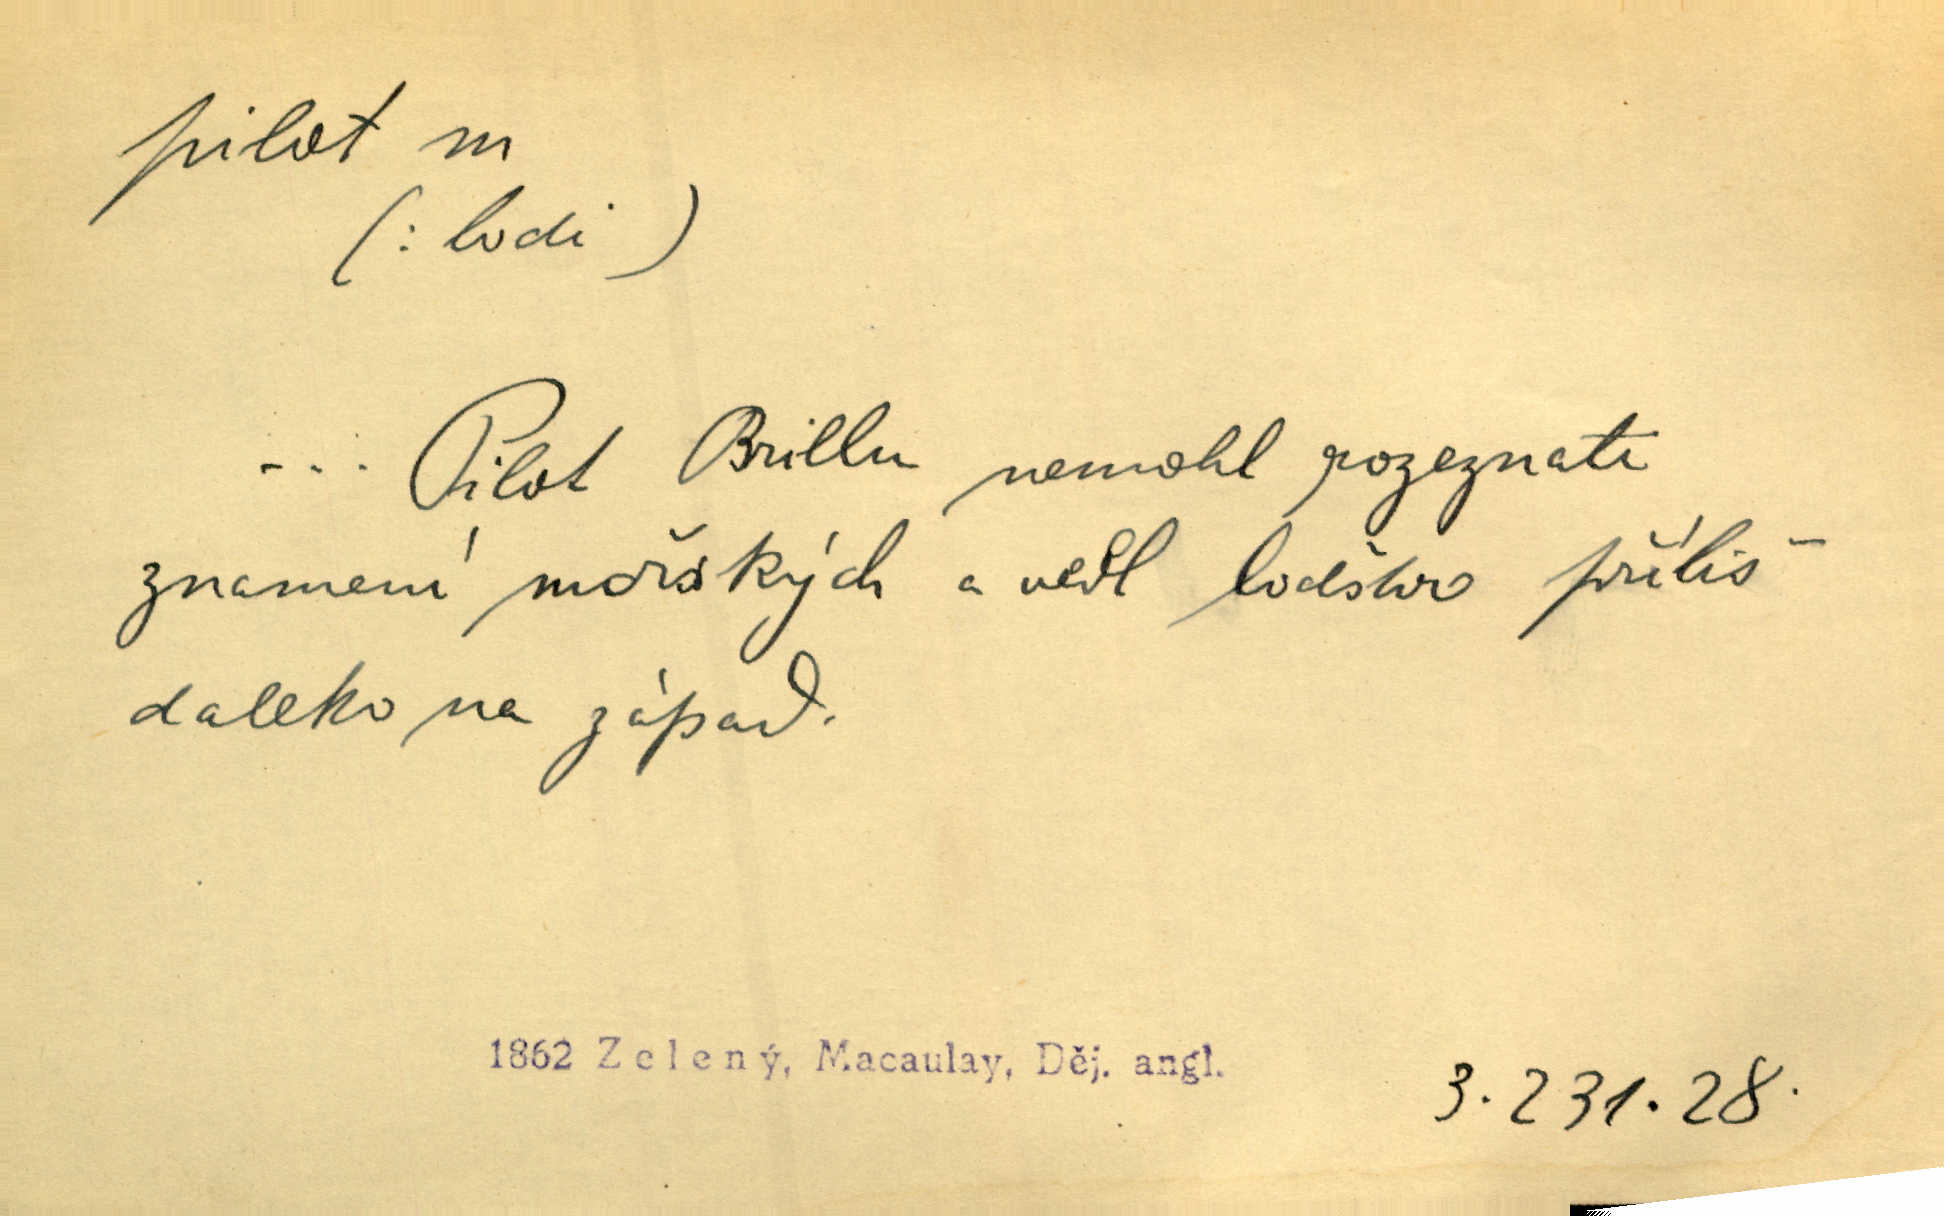 pilot m
(: lodi )
... Pilot Brillu nemohl rozeznati
znamení mořských a vedl loďstvo příliš
daleko na západ.
1862 Zelený, Macaulay, Děj. angl.
3.231.28.